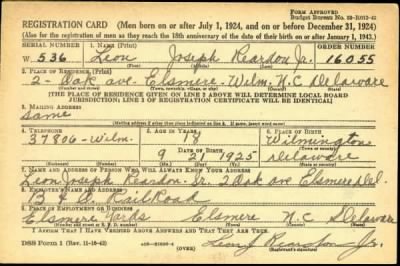 REGISTRATION CARD (Men born on or after July 1, 1924, and on or before December 31, 1924)
FORM APPROVED
Budget Bureau No. 33-R012-42
(Also for the registration of men as they reach the 18th anniversary of the date of their birth on or after January 1, 1943.)
SERIAL NUMBER 1. NAME (Print) ORDER NUMBER
W. 536 Leon Joseph Reardon Jr. 16055
(First) (Middle) (Last)
2. PLACE OF RESIDENCE (Print)
2- Oak ave. Elsmere- Wilm. N.C Delaware
(Number and street) (Town, township, village, or city) (County) (State)
[THE PLACE OF RESIDENCE GIVEN ON LINE 2 ABOVE WILL DETERMINE LOCAL BOARD
JURISDICTION; LINE 2 OF REGISTRATION CERTIFICATE WILL BE IDENTICAL]
3. MAILING ADDRESS
Same
[Mailing address if other than place indicated on line 2. If same, insert word same]
4. TELEPHONE 5. AGE IN YEARS 6. PLACE OF BIRTH
37806-Wilm. 18 Wilmington
DATE OF BIRTH (Town or county)
9 2 1925 Delaware
(Exchange) (Number) (Mo.) (Day) (Yr.) (State or country)
7. NAME AND ADDRESS OF PERSON WHO WILL ALWAYS KNOW YOUR ADDRESS
Leon Joseph Reardon- Sr. 2 Oak ave Elsmere Del.
8. EMPLOYER'S NAME AND ADDRESS
B & O. RailRoad
9. PLACE OF EMPLOYMENT OR BUSINESS
Elsmere Yards Elsmere N.C Delaware
(Number and street or R. F. D. number) (Town) (County) (State)
I AFFIRM THAT I HAVE VERIFIED ABOVE ANSWERS AND THAT THEY ARE TRUE.
DSS Form 1 (Rev. 11-16-42)
Leon J Reardon Jr.
(Registrant's signature)